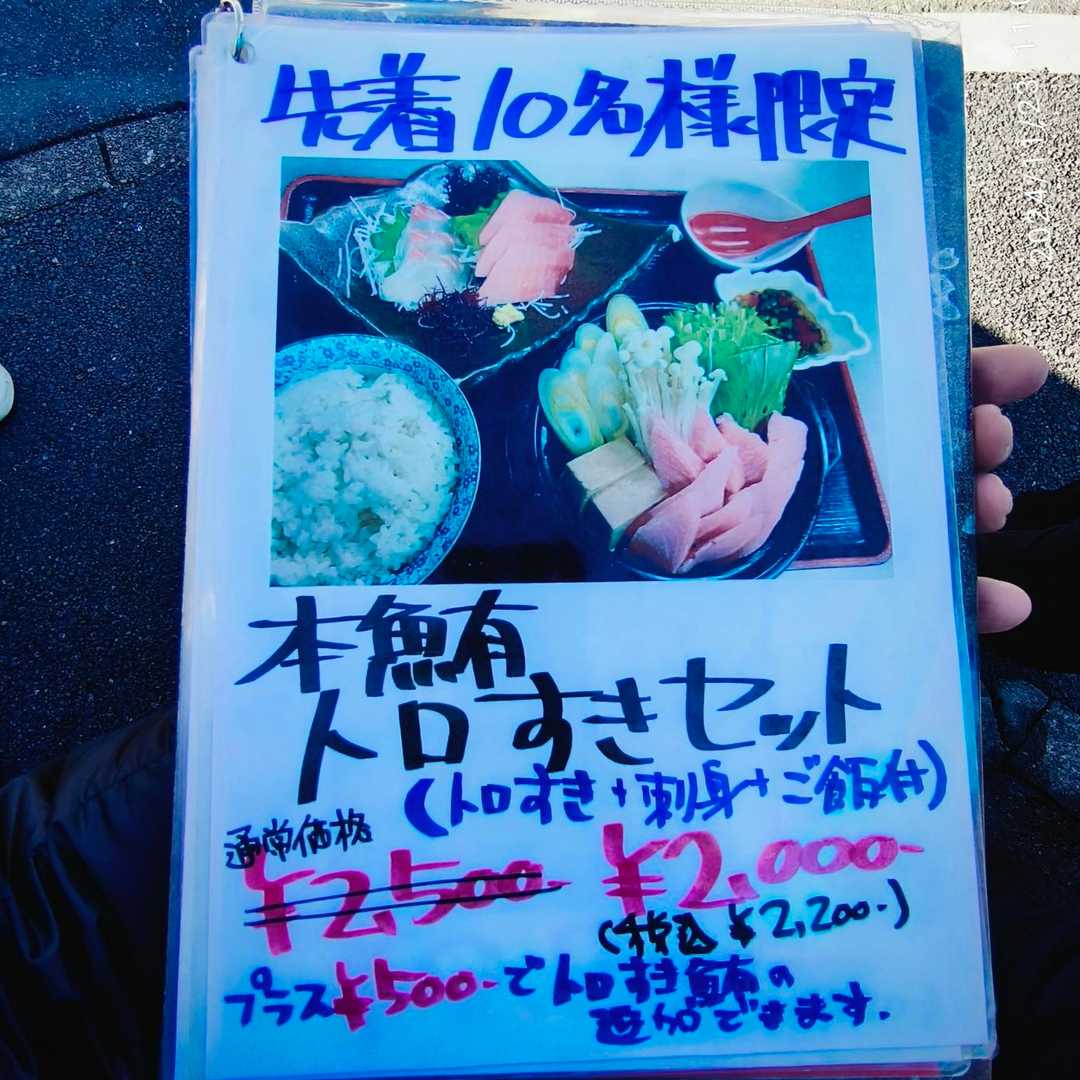 先着10名様限定
本鮪
トロすきセット
(トロすき+刺身+ご飯付)
通常価格
¥2,500- ¥2,000-
(税込¥2,200-)
プラス¥500-でトロすき鮪の
追加できます.